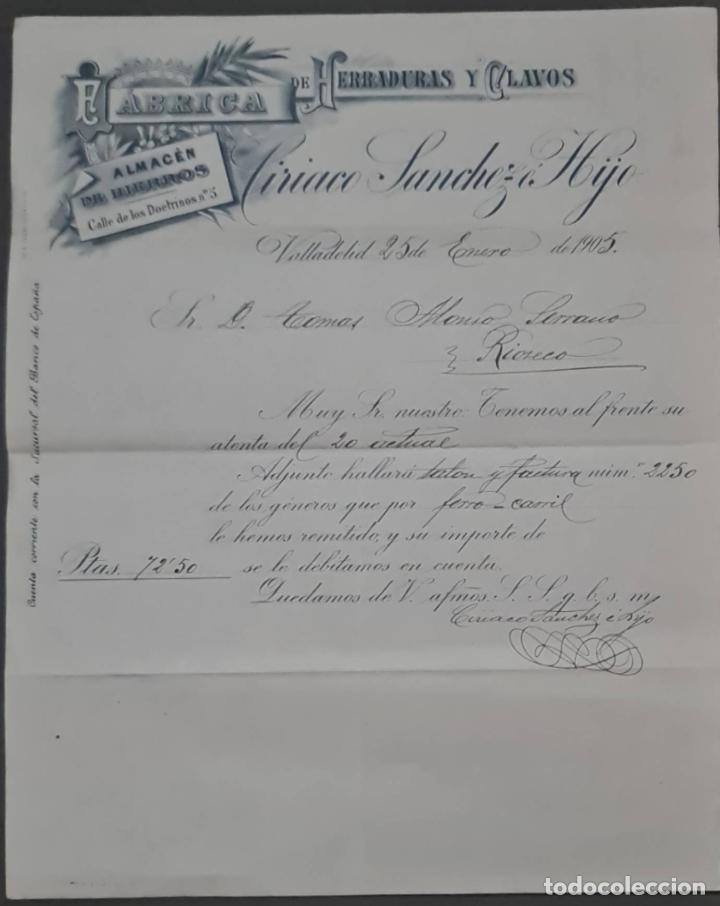 FABRICA DE HERRADURAS Y CLAVOS
ALMACÉN
DE HIERROS
Calle de los Doctrinos nº 5
Ciriaco Sanchez é Hijo
Valladolid 25 de Enero de 1905.
Sr. D. Tomas Alonso Serrano
Rioseco
Muy Sr. nuestro: Tenemos al frente su
atenta del 20 actual
Adjunto hallará talon y factura núm.º 2250
de los géneros que por ferro-carril
le hemos remitido, y su importe de
Ptas. 72'50 se lo debitamos en cuenta.
Quedamos de V. afmos. S. S. q. b. s. m.
Ciriaco Sanchez é Hijo
Cuenta corriente con la Sucursal del Banco de España
todocoleccion